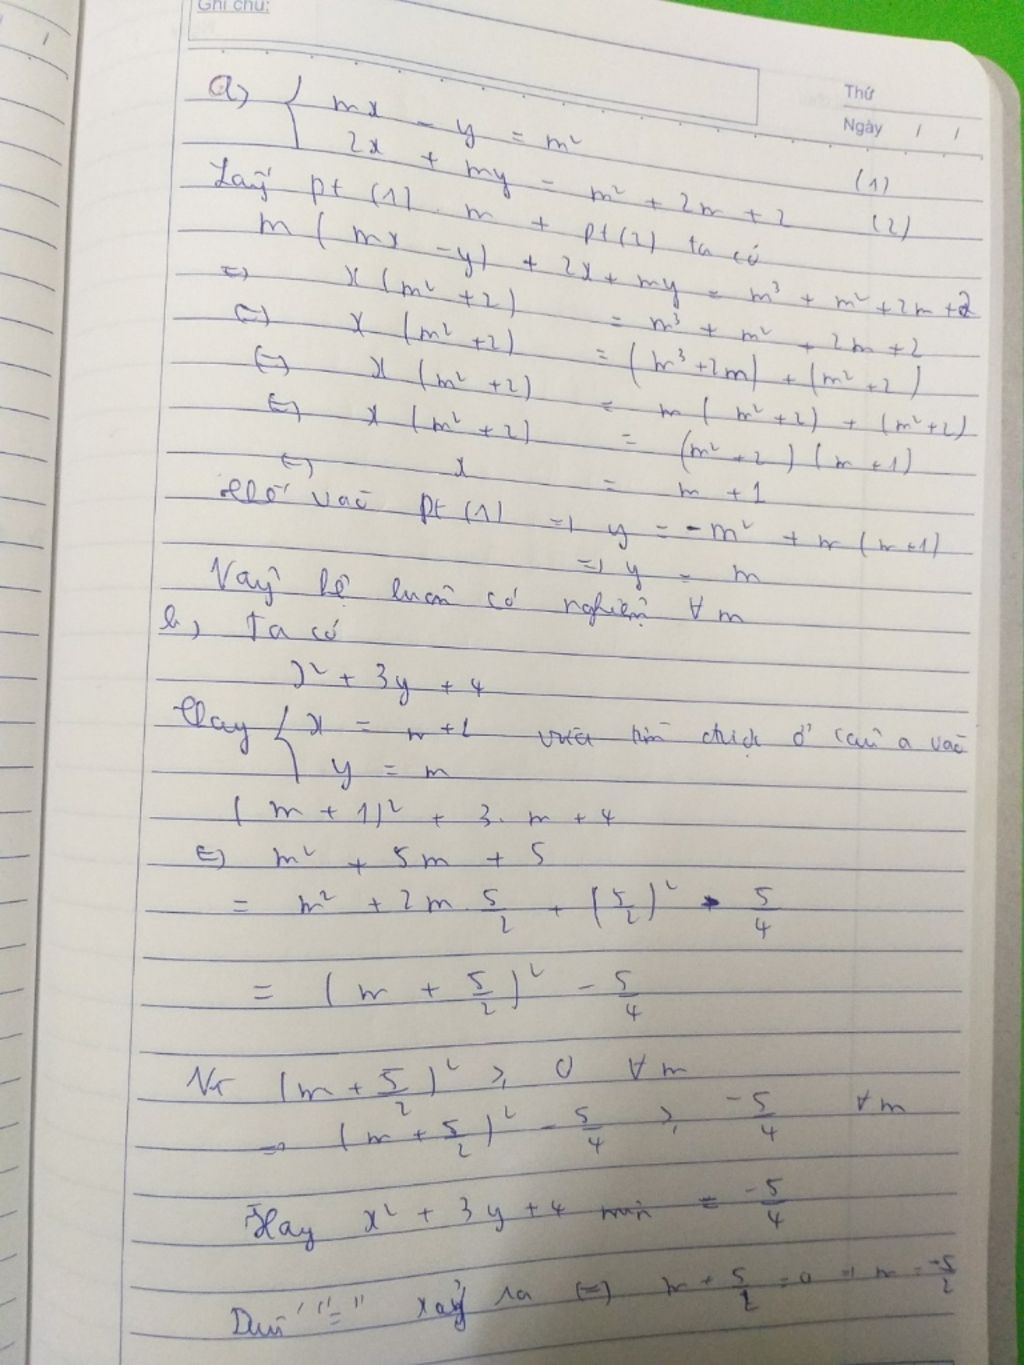 Ghi chú:
Thứ
Ngày / /
a) { mx - y = m² (1)
2x + my = m² + 2m + 2 (2)
Lấy pt (1) . m + pt(2) ta có
m ( mx - y) + 2x + my = m³ + m² + 2m + 2
⇔ x (m² + 2) = m³ + m² + 2m + 2
⇔ x (m² + 2) = (m³ + 2m) + (m² + 2)
⇔ x (m² + 2) = m ( m² + 2) + (m² + 2)
⇔ x (m² + 2) = (m² + 2) (m + 1)
⇔ x = m + 1
Thế vào pt (1) => y = - m² + m (m + 1)
=> y = m
Vậy hệ luôn có nghiệm ∀ m
b) Ta có
x² + 3y + 4
Thay { x = m + 1 vừa tìm được ở câu a vào
y = m
( m + 1)² + 3. m + 4
⇔ m² + 5m + 5
= m² + 2m 5/2 + (5/2)² - 5/4
= ( m + 5/2 )² - 5/4
Vì (m + 5/2)² ≥ 0 ∀ m
=> (m + 5/2)² - 5/4 ≥ -5/4 ∀ m
Hay x² + 3y + 4 min = -5/4
Dấu "=" xảy ra ⇔ m + 5/2 = 0 => m = -5/2